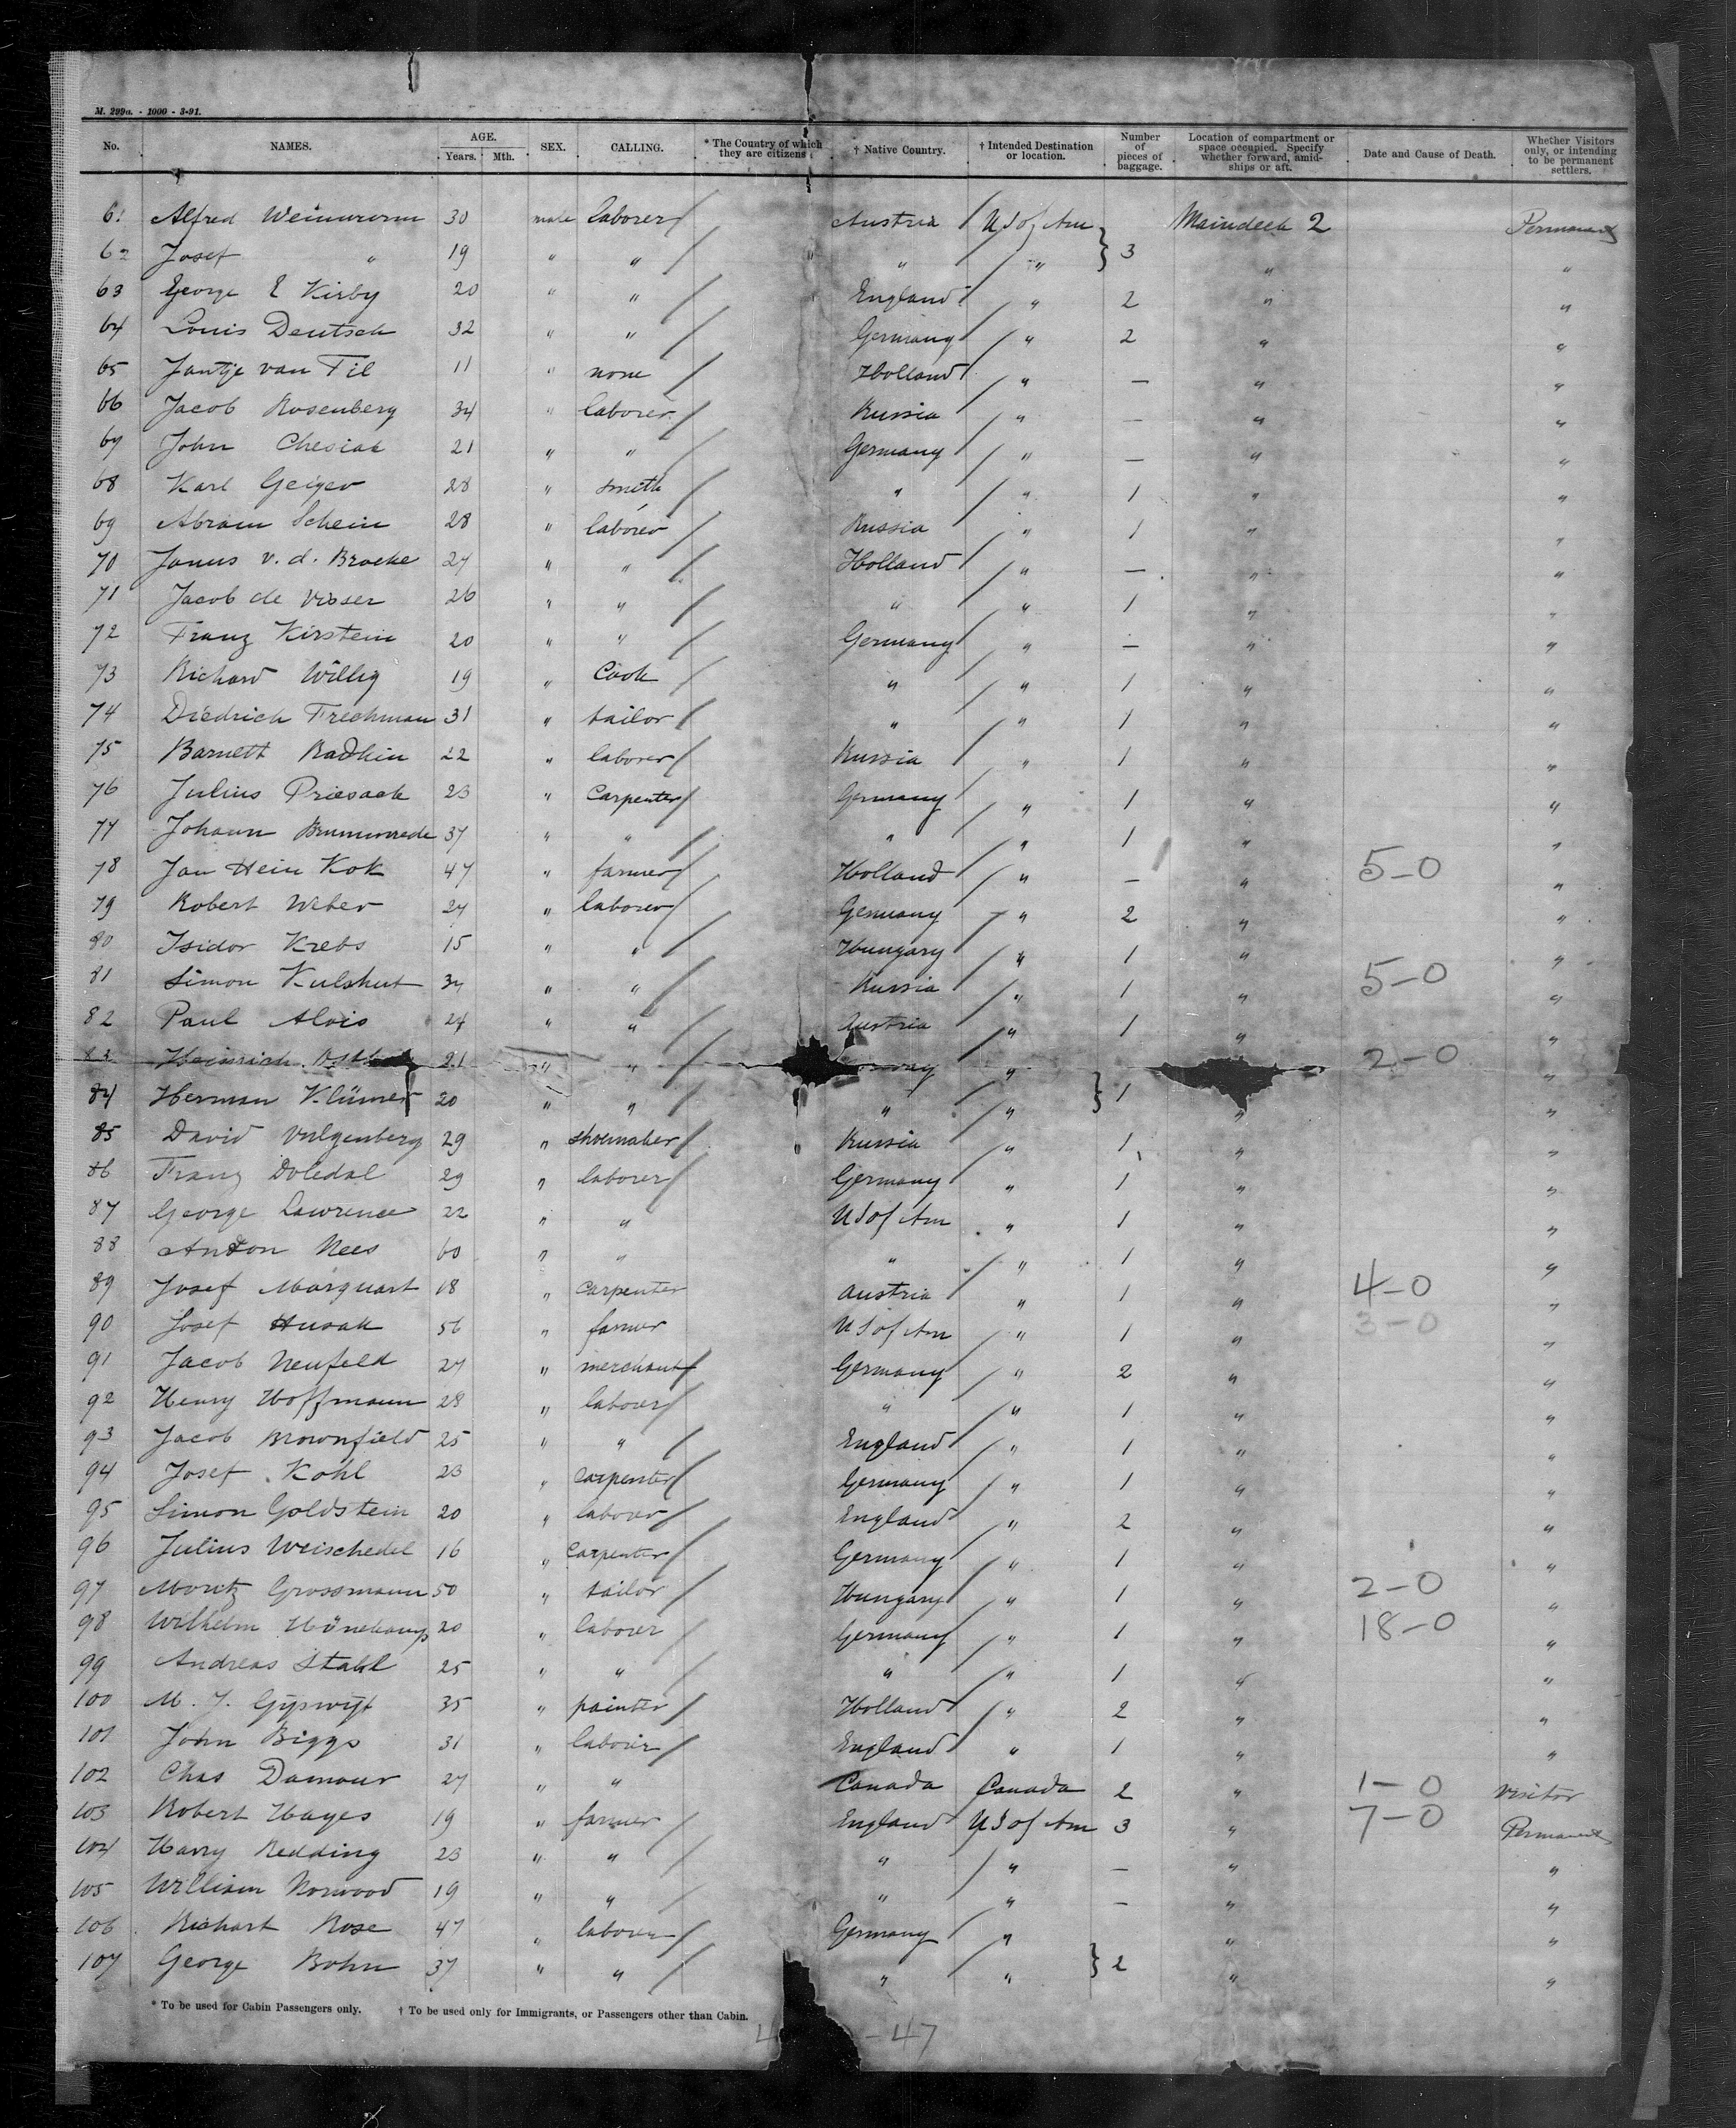 M. 299a. - 1000 - 3-91.
No. NAMES. AGE. Years. Mth. SEX. CALLING. * The Country of which they are citizens † Native Country. † Intended Destination or location. Number of pieces of baggage. Location of compartment or space occupied. Specify whether forward, amidships or aft. Date and Cause of Death. Whether Visitors only, or intending to be permanent settlers.
61 Alfred Weinwurm 30 male laborer Austria U S of Am Maindeck 2 Permanent
62 Josef " 19 " " " " } 3 " "
63 George E Kirby 20 " " England " 2 " "
64 Louis Deutsch 32 " " Germany " 2 " "
65 Jantje van Til 11 " none Holland " — " "
66 Jacob Rosenberg 34 " laborer Russia " — " "
67 John Chesiak 21 " " Germany " — " "
68 Karl Geiger 28 " smith " " 1 " "
69 Abram Schein 28 " laborer Russia " 1 " "
70 Janus v. d. Broeke 27 " " Holland " — " "
71 Jacob de Visser 26 " " " " 1 " "
72 Franz Kirstein 20 " " Germany " — " "
73 Richard Willig 19 " Cook " " 1 " "
74 Diedrich Frechman 31 " tailor " " 1 " "
75 Barnett Radkin 22 " laborer Russia " 1 " "
76 Julius Priesack 23 " Carpenter Germany " 1 " "
77 Johann 37 " " " " 1 " "
78 Jan Hein Kok 47 " farmer Holland " — " 5-0 "
79 Robert Weber 27 " laborer Germany " 2 " "
80 Isidor Krebs 15 " " Hungary " 1 " "
81 Simon Kulshut 34 " " Russia " 1 " 5-0 "
82 Paul Alois 24 " " Austria " 1 " "
83 Heinrich 21 " " " 2-0 "
84 Herman Klümer 20 " " " " } 1 " "
85 David Vulgenberg 29 " shoemaker Russia " 1 " "
86 Franz Doledal 29 " laborer Germany " 1 " "
87 George Lawrence 22 " " U S of Am " 1 " "
88 Anton Nees 60 " " " " 1 " "
89 Josef Marquart 18 " carpenter Austria " 1 " 4-0 "
90 Josef Husak 56 " farmer U S of Am " 1 " 3-0 "
91 Jacob Neufeld 27 " merchant Germany " 2 " "
92 Henry Hoffmann 28 " laborer " " 1 " "
93 Jacob Brownfield 25 " " England " 1 " "
94 Josef Kohl 23 " carpenter Germany " 1 " "
95 Simon Goldstein 20 " laborer England " 2 " "
96 Julius Weischedel 16 " Carpenter Germany " 1 " "
97 Moritz Grossmann 50 " tailor Hungary " 1 " 2-0 "
98 Wilhelm Hönekamp 20 " laborer Germany " 1 " 18-0 "
99 Andreas Stahl 25 " " " " 1 " "
100 M. J. Gijswijt 35 " painter Holland " 2 " "
101 John Biggs 31 " laborer England " 1 " "
102 Chas Damour 27 " " Canada Canada 2 " 1-0 Visitor
103 Robert Hayes 19 " farmer England U S of Am 3 " 7-0 Permanent
104 Harry Redding 23 " " " " — " "
105 William Norwood 19 " " " " — " "
106 Richart Rose 47 " laborer Germany " " "
107 George Bohn 37 " " " " } 2 " "
* To be used for Cabin Passengers only. † To be used only for Immigrants, or Passengers other than Cabin.
4 -47